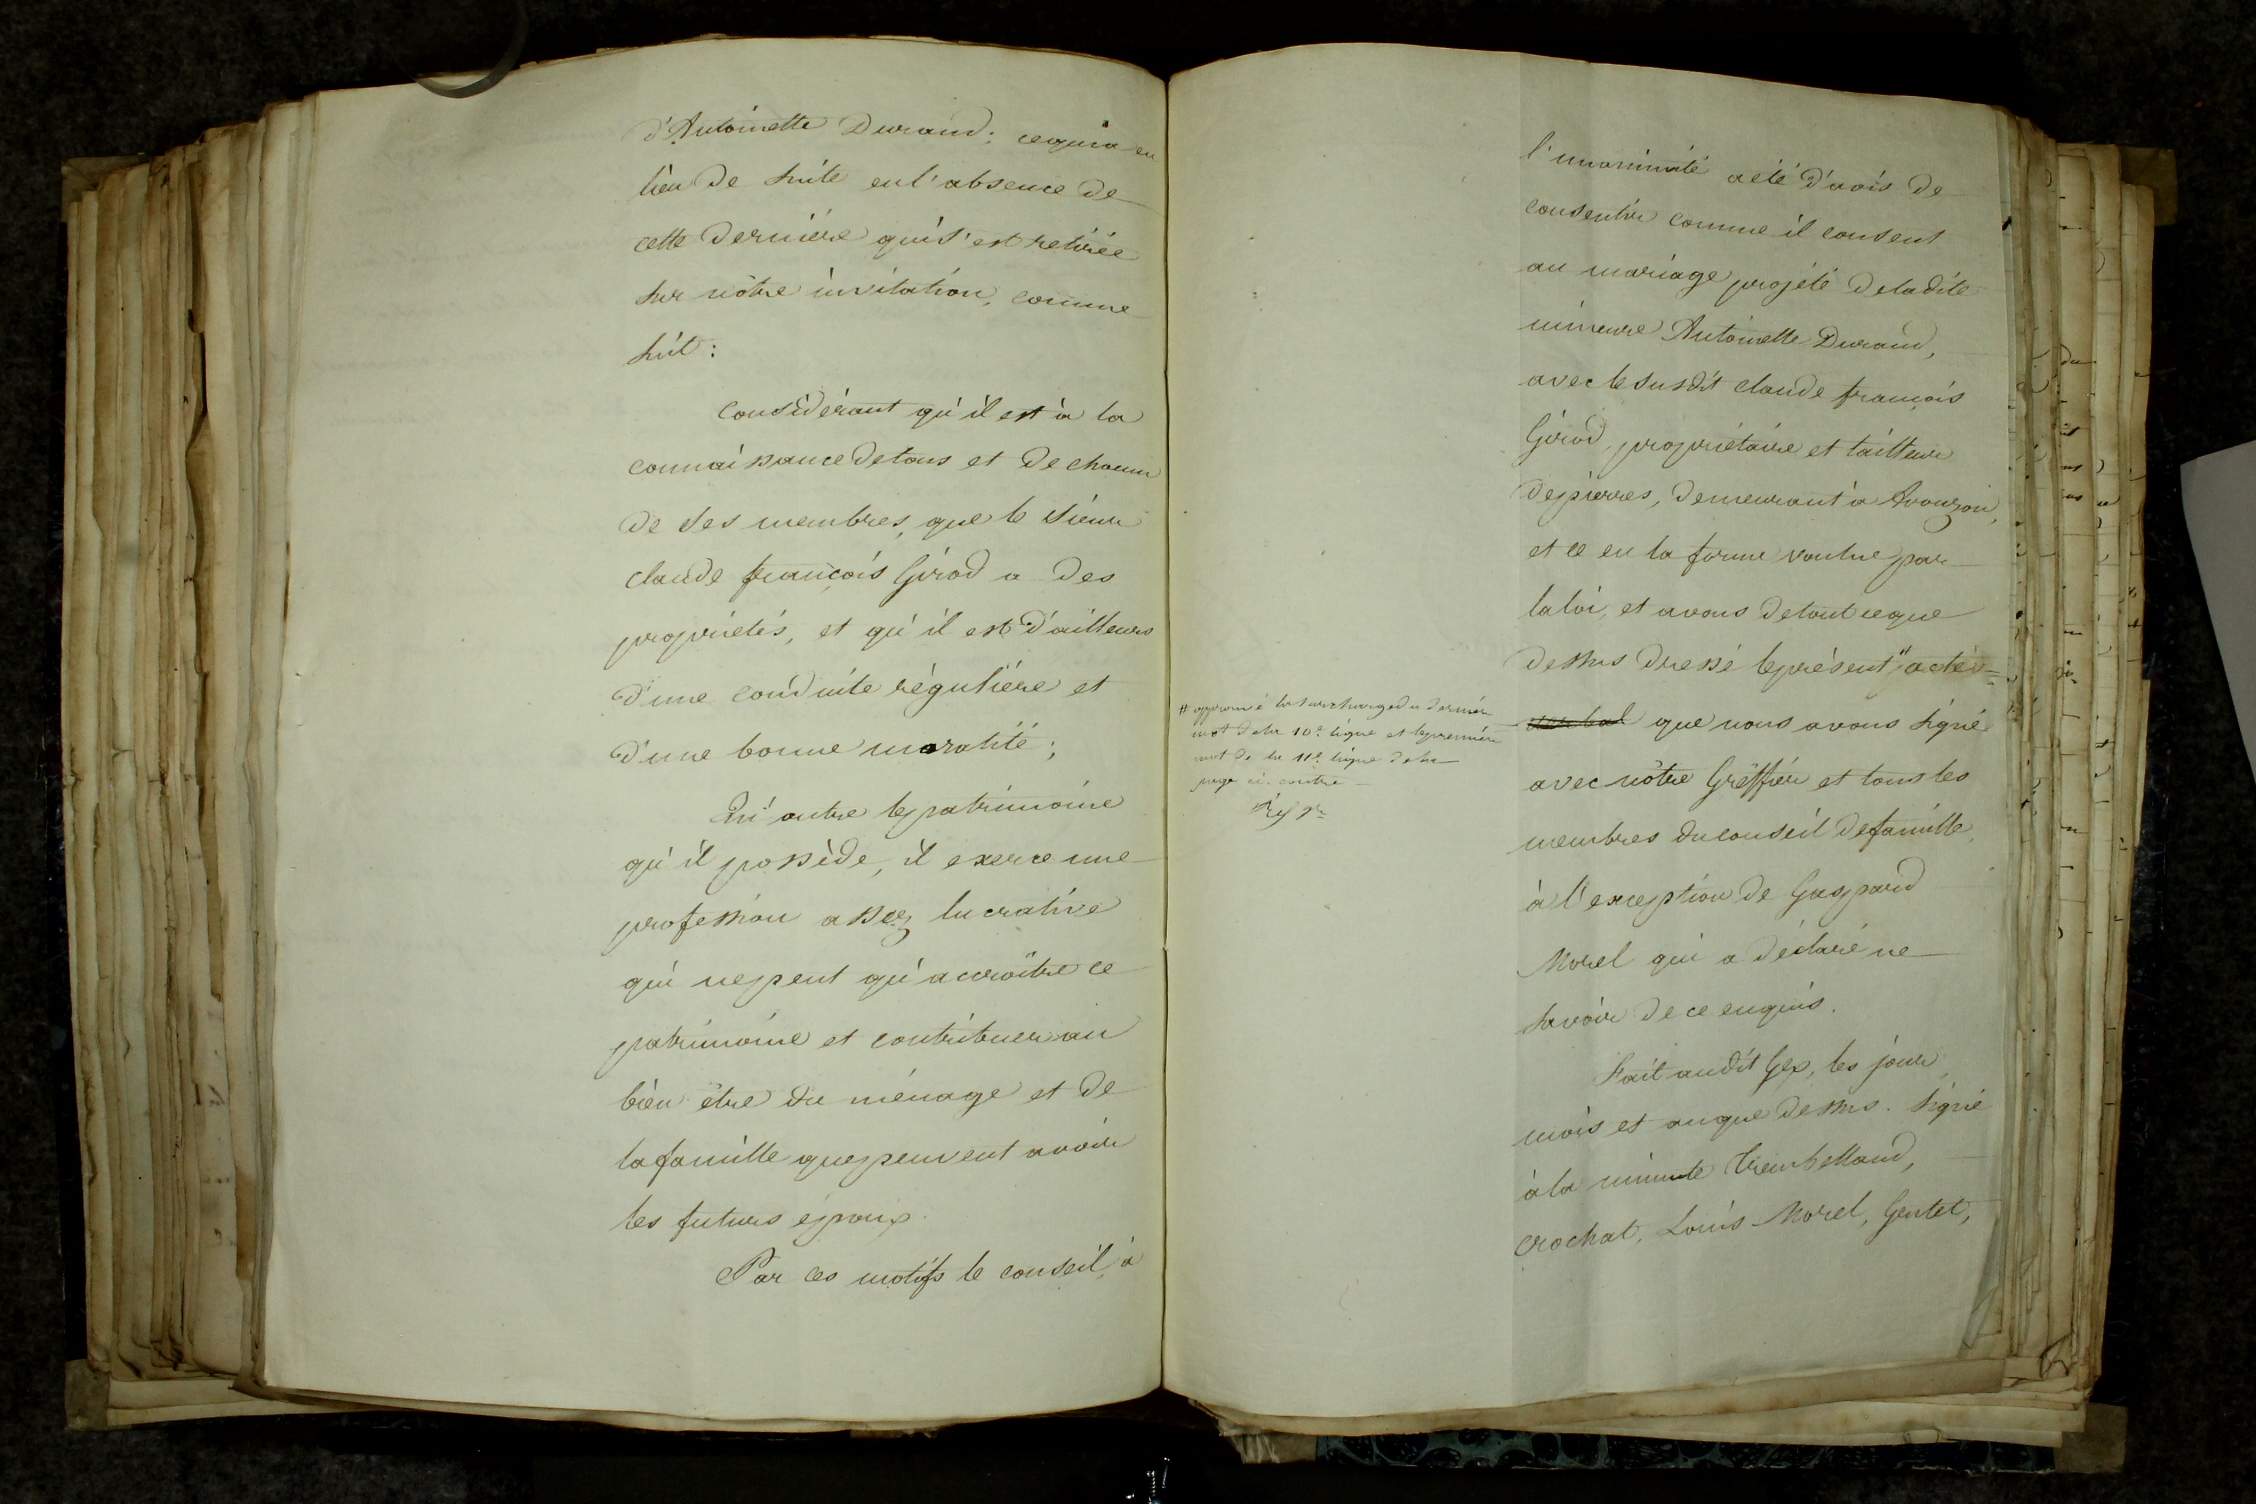 d'Antoinette Durand; ce qui a eu
lieu de suite en l'absence de
cette dernière qui s'est retirée
sur nôtre invitation, comme
suit :
Considérant qu'il est à la
connaissance de tous et de chacun
de ses membres, que le sieur
claude françois Girod a des
propriétés, et qu'il est d'ailleurs
d'une conduite régulière et
d'une bonne moralité ;
Qu'outre le patrimoine
qu'il possède, il exerce une
profession assez lucrative
qui ne peut qu'accroître ce
patrimoine et contribuer au
bien être du ménage et de
la famille que peuvent avoir
les futurs époux.
Par ces motifs le conseil à
l'unanimité a été d'avis de
consentir comme il consent
au mariage projeté de ladite
mineure Antoinette Durand,
avec le susdit claude françois
Girod, propriétaire et tailleur
de pierres, demeurant à Avouzon,
et ce en la forme voulue par
la loi, et avons de tout ce que
dessus dressé le présent # acte
verbal que nous avons signé
avec nôtre Greffier et tous les
membres du conseil de famille,
à l'exception de Gaspard
Morel qui a déclaré ne
savoir de ce enquis.
Fait audit Gex, les jour,
mois et an que dessus. Signé
à la minute Trembelland,
Crochat, Louis Morel, Gentet,
# approuvé la surcharge du dernier
mot de la 10e ligne et le premier
mot de la 11e ligne de la
page ci-contre